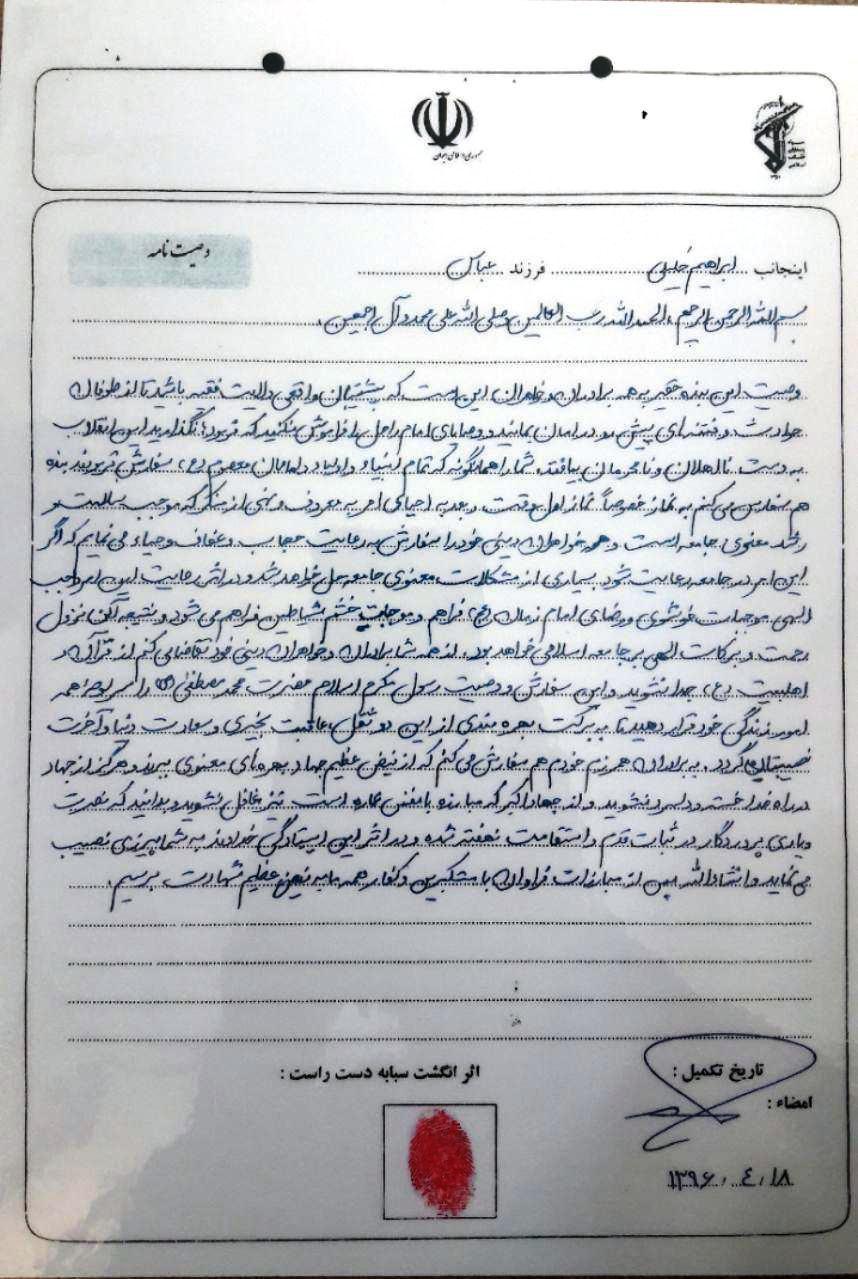 جمهوری اسلامی ایران
وصیت نامه
اینجانب ابراهیم خلیلی فرزند عباس
بسم الله الرحمن الرحیم، الحمدالله رب العالمین وصلی الله علی محمد و آل اجمعین.
وصیت این بنده حقیر به همه برادران و خواهران این است که پشتیبان واقعی ولایت فقیه باشید تا از طوفان
حوادث و فتنه های پیش رو در امان بمانید و وصایای امام راحل را فراموش نکنید که فرمود: نگذارید این انقلاب
به دست نااهلان و نامحرمان بیافتد. شما را همانگونه که تمام انبیاء و اولیاء و امامان معصوم (ع) سفارش فرمودند بنده
هم سفارش می کنم به نماز خصوصاً نماز اول وقت و بعد به احیای امر به معروف و نهی از منکر که موجب سلامت و
رشد معنوی جامعه است و همه خواهران دینی خود را سفارش به رعایت حجاب و عفاف و حیاء می نمایم که اگر
این امر در جامعه رعایت شود بسیاری از مشکلات معنوی جامعه حل خواهد شد و در اثر رعایت این امر واجب
الهی موجبات خوشنودی و رضای امام زمان (عج) فراهم و موجبات خشم شیاطین فراهم می شود و نتیجه آن نزول
رحمت و برکات الهی بر جامعه اسلامی خواهد بود. از همه شما برادران و خواهران دینی خود تقاضا می کنم از قرآن و
اهلبیت (ع) جدا نشوید و این سفارش و وصیت رسول مکرم اسلام حضرت محمد مصطفی (ص) را سرلوحه همه
امور زندگی خود قرار دهید تا به برکت بهره مندی از این دو ثقل عاقبت بخیری و سعادت دنیا و آخرت
نصیبتان گردد. به برادران همرزم خودم هم سفارش می کنم که از فیض عظیم جهاد بهره های معنوی ببرند و هرگز از جهاد
در راه خدا خسته و دلسرد نشوید و از جهاد اکبر که مبارزه با نفس اماره است نیز غافل نشوید و بدانید که نصرت
و یاری پروردگار در ثبات قدم و استقامت نهفته شده و در اثر این ایستادگی خداوند به شما پیروزی نصیب
می نماید و انشاءالله پس از مبارزات فراوان با مشرکین و کفار همه ما به فیض عظیم شهادت برسیم.
تاریخ تکمیل :
اثر انگشت سبابه دست راست :
امضاء :
۱۳۹۶.۴.۱۸